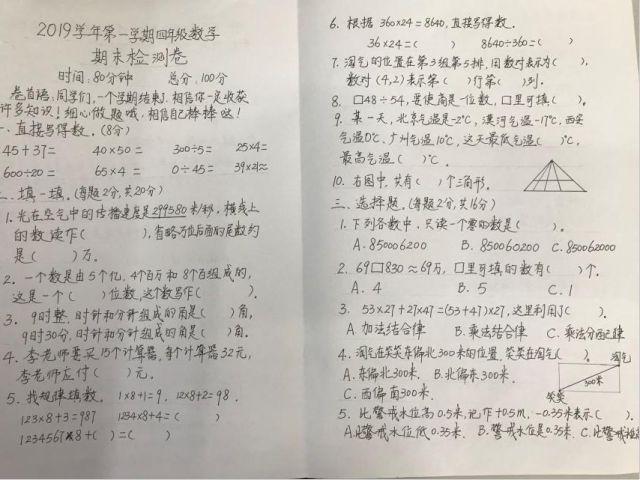 2019学年第一学期四年级数学
期末检测卷
时间:80分钟 总分:100分
卷首语:同学们,一个学期结束了,相信你一定收获
许多知识!细心做题哦,相信自己棒棒哒!
一、直接写得数。(8分)
45+37= 40×50= 300÷5= 25×4=
600÷20= 65×4= 0÷45= 39×21≈
二、填一填。(每题2分,共20分)
1.光在空气中的传播速度是299580米/秒,横线上
的数读作( ),省略万位后面的尾数约
是( )万。
2.一个数是由5个亿、4个百万和8个百组成的,
这是一个( )位数,这个数写作( )。
3.9时整,时针和分针组成的角是( )角,
9时30分,时针和分针组成的角是( )角。
4.李老师要买15个计算器,每个计算器32元,
李老师应付( )元。
5.找规律填数。1×8+1=9, 12×8+2=98.
123×8+3=987 1234×8+4=( )
1234567×8+( )=( )
6.根据360×24=8640,直接写得数.
36×24=( ) 8640÷360=( )
7.淘气的位置在第3组第5排,用数对表示为( ),
数对(4,2)表示第( )行第( )列.
8.口48÷54,要使商是一位数,口里可填( )。
9.某一天,北京气温是-2℃,漠河气温-17℃,西安
气温0℃、广州气温10℃,这天最低气温( )℃,
最高气温( )℃.
10.右图中,共有( )个三角形.
三、选择题。(每题2分,共16分)
1.下列各数中,只读一个零的数是( )。
A.850006200 B.850060200 C.850062000
2.69口830≈69万,口里可填的数有( )个.
A.4 B.5 C.1
3.53×27+27×47=(53+47)×27,这里利用了( )。
A.加法结合律 B.乘法结合律 C.乘法分配律
4.淘气在笑笑东偏北300米的位置,笑笑在淘气( )。 淘气
A.东偏北300米. B.北偏东300米. 300米
C.西偏南300米. 笑笑
5.比警戒水位高0.5米,记作+0.5m,-0.35米表示( )。
A.比警戒水位低0.35米. B.警戒水位是0.35米. C.比警戒水位